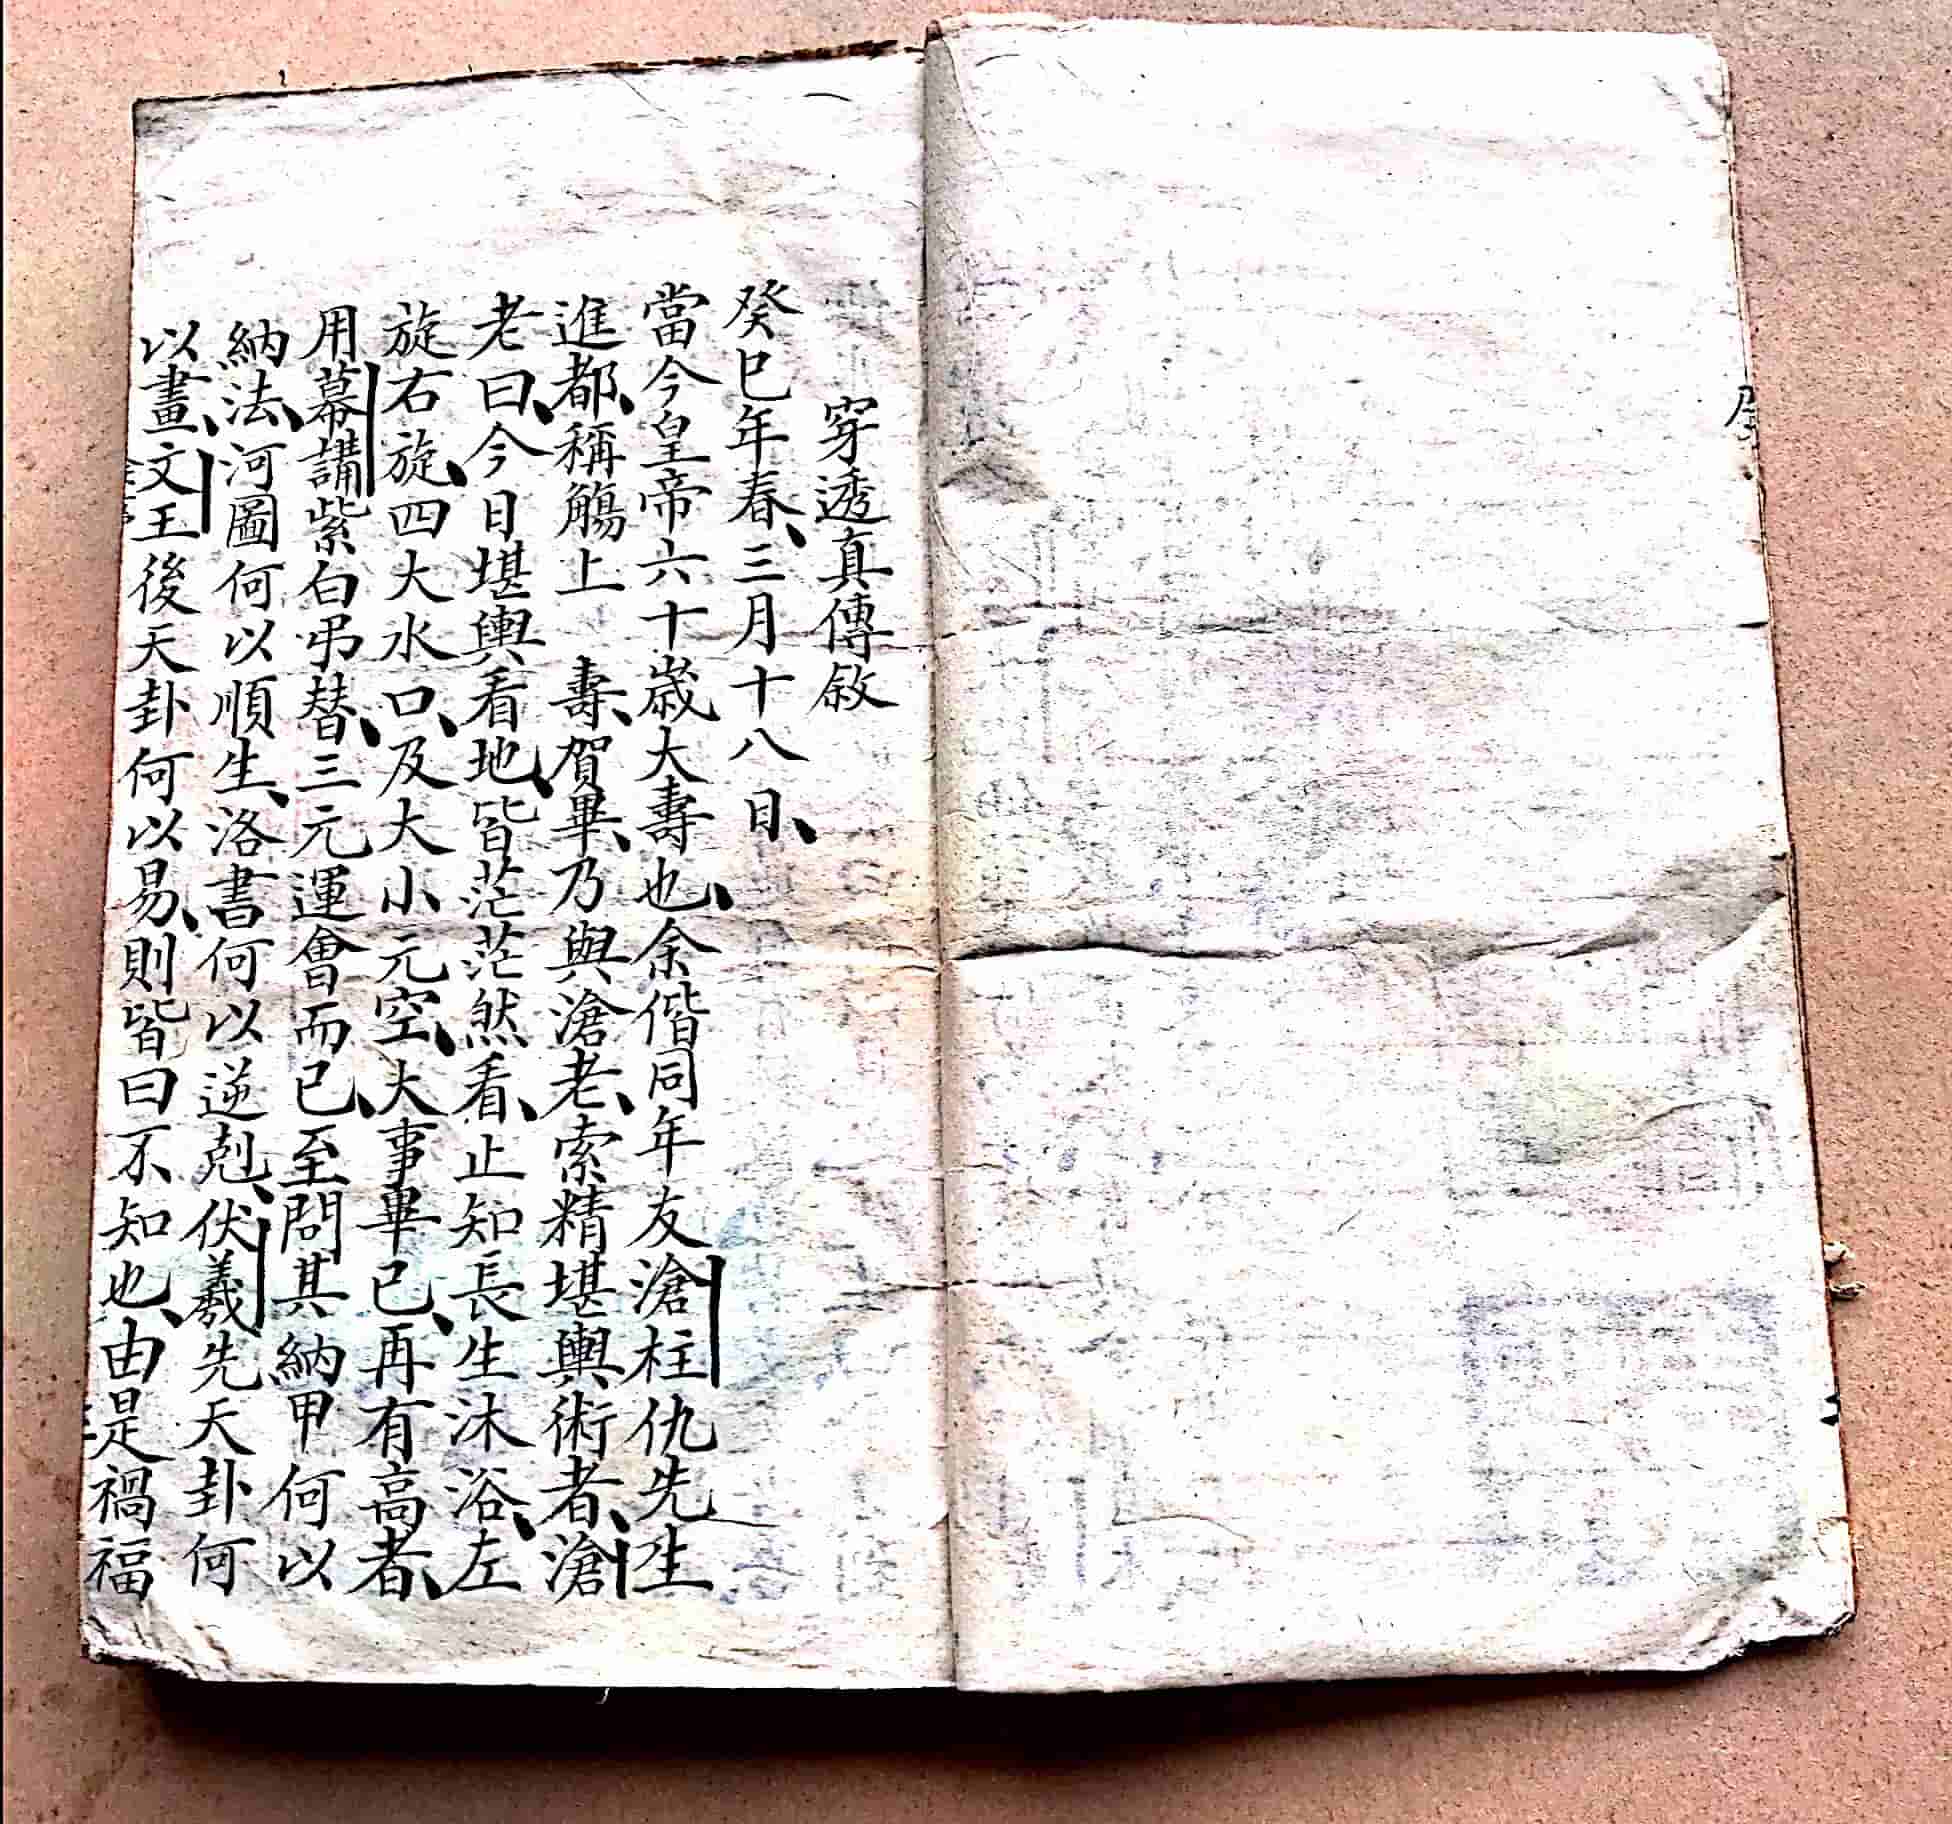 穿透真傳敘
癸巳年春、三月十八日、
當今皇帝六十歲大壽也、余偕同年友滄柱仇先生
進都、稱觴上　壽、賀畢、乃與滄老、索精堪輿術者、滄
老曰、今日堪輿看地、皆茫茫然看、止知長生沐浴、左
旋右旋、四大水口、及大小元空、大事畢已、再有高者、
用幕講紫白弔替、三元運會而已、至問其納甲何以
納法、河圖何以順生、洛書何以逆剋、伏羲先天卦何
以畫、文王後天卦何以易、則皆曰不知也、由是禍福